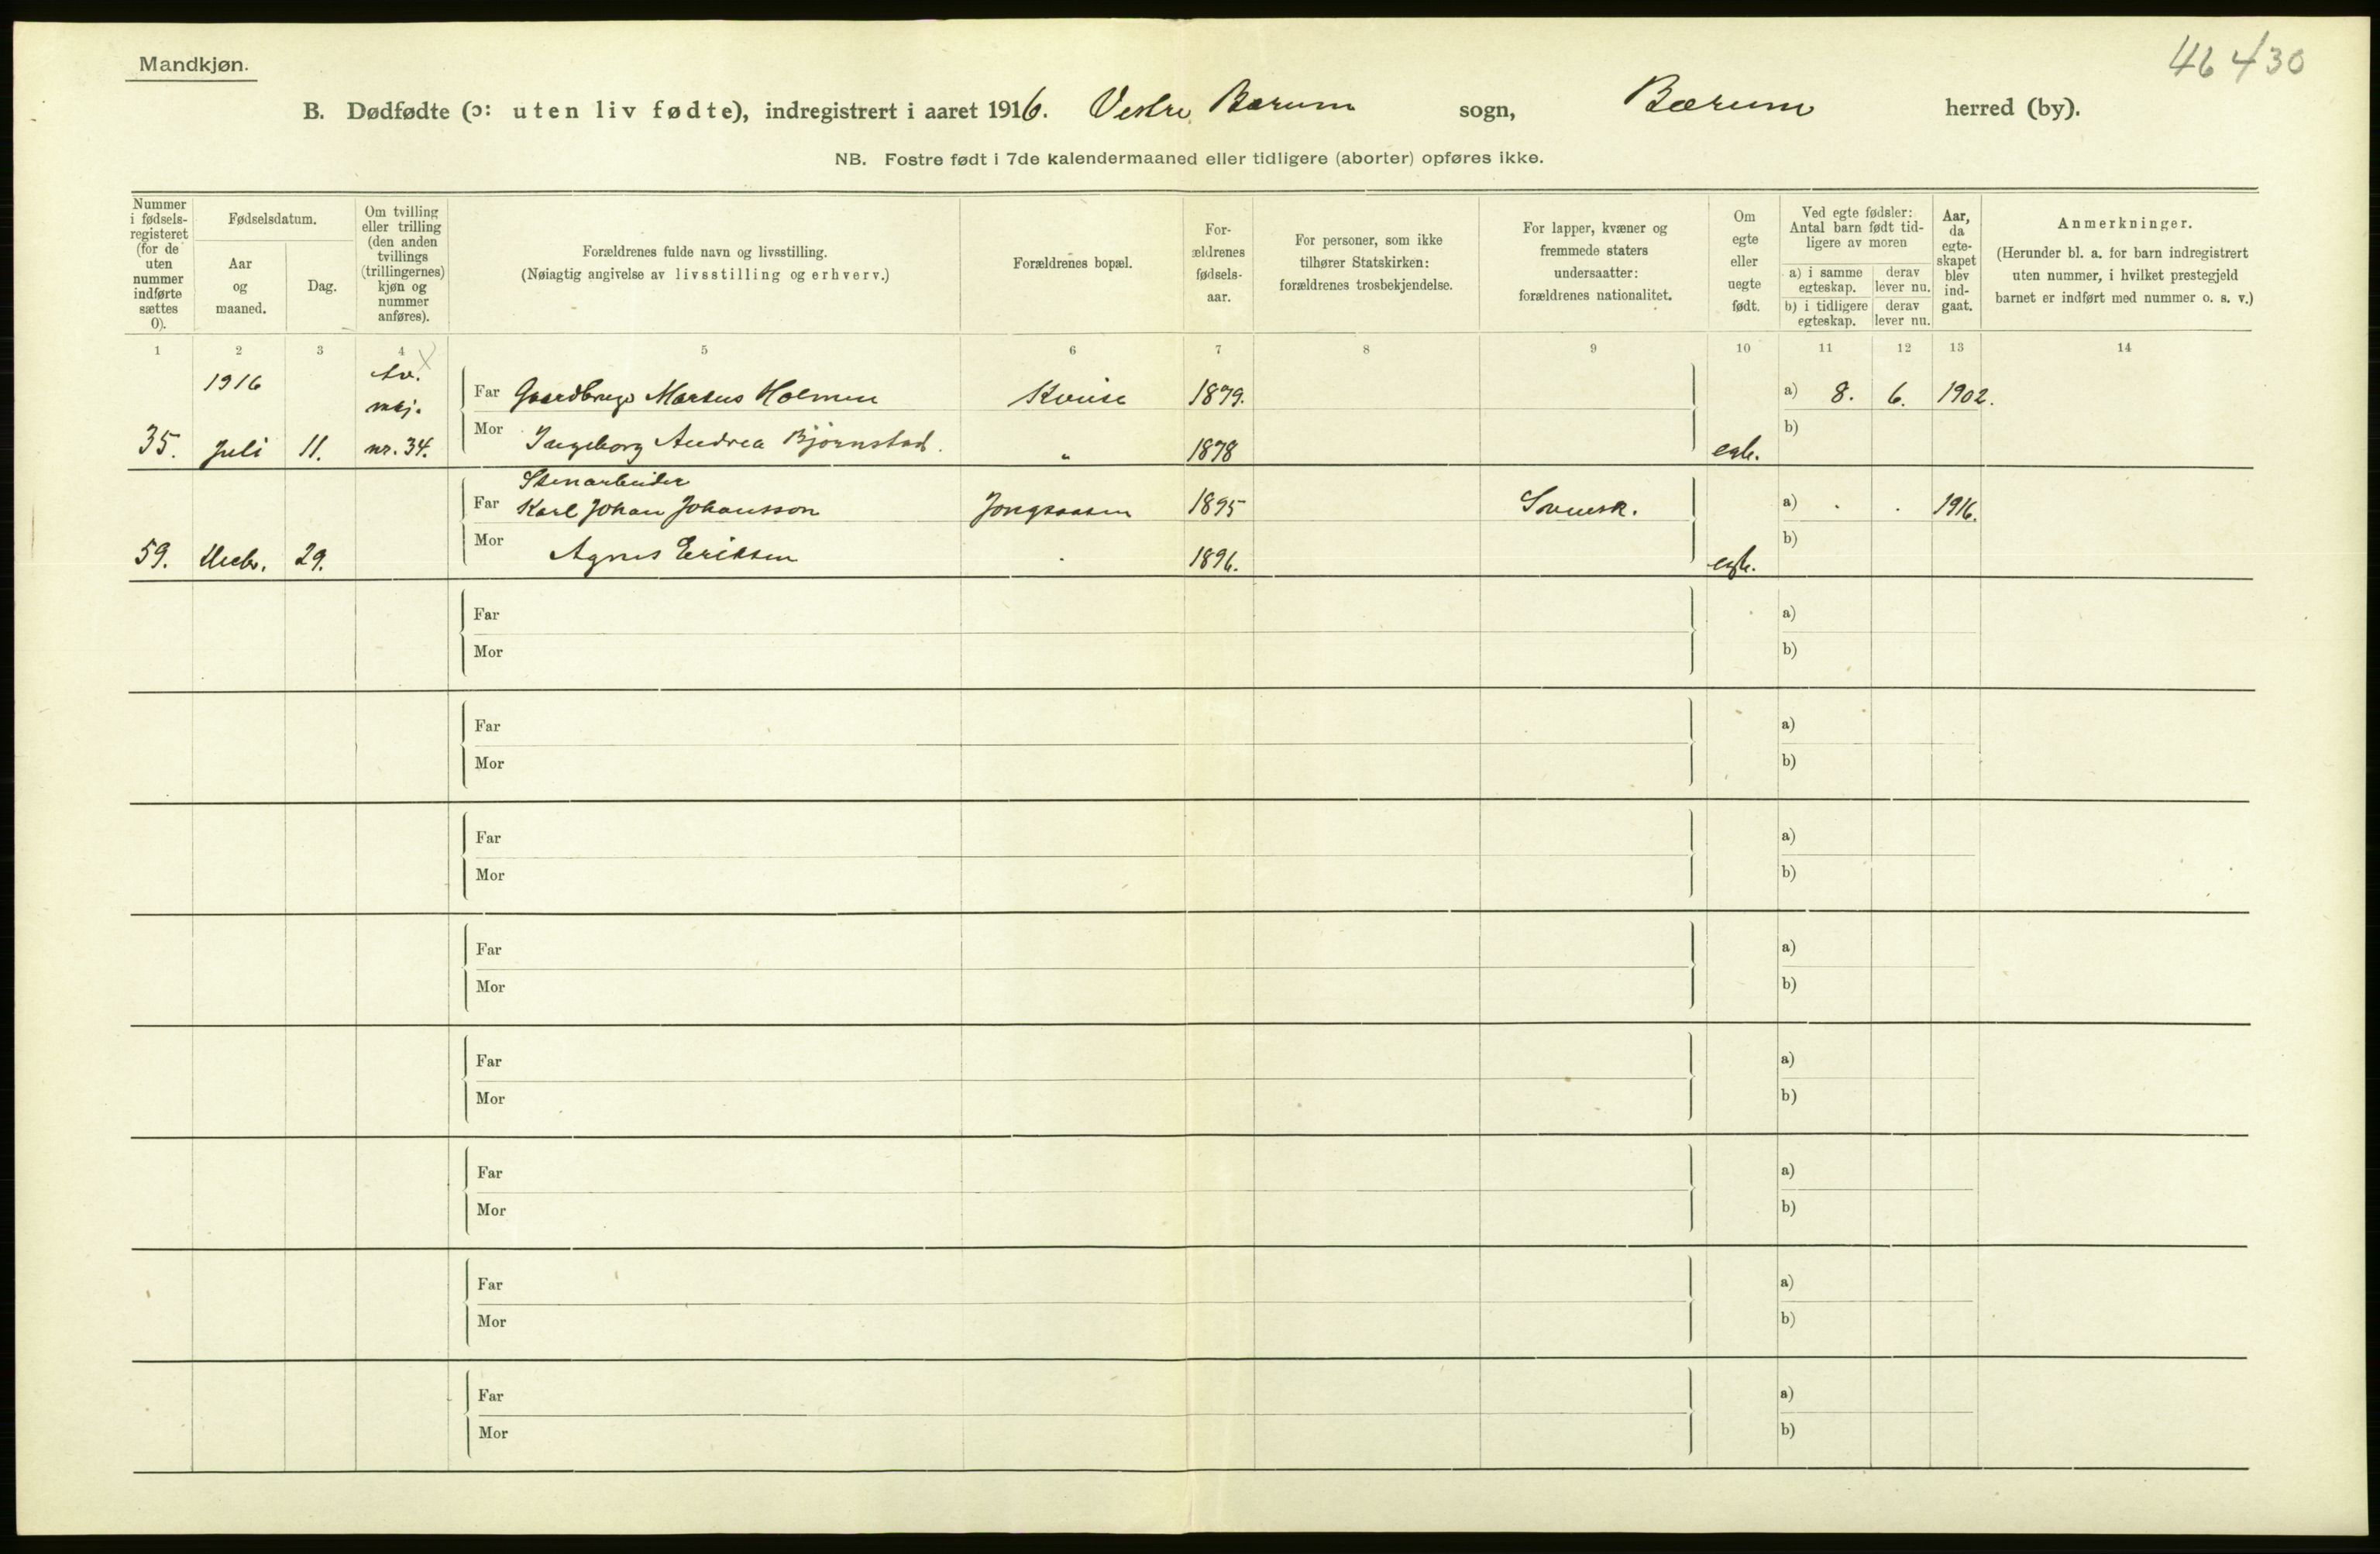 Mandkjøn.
46 430
B. Dødfødte (ɔ: uten liv fødte), indregistrert i aaret 1916. Vestre Bærum sogn, Bærum herred (by).
NB. Fostre født i 7de kalendermaaned eller tidligere (aborter) opføres ikke.
Nummer
i fødsels-
registeret
(for de
uten
nummer
indførte
sættes
0).
Fødselsdatum.
Aar
og
maaned.
Dag.
Om tvilling
eller trilling
(den anden
tvillings
(trillingernes)
kjøn og
nummer
anføres).
Forældrenes fulde navn og livsstilling.
(Nøiagtig angivelse av livsstilling og erhverv.)
Forældrenes bopæl.
For-
ældrenes
fødsels-
aar.
For personer, som ikke
tilhører Statskirken:
forældrenes trosbekjendelse.
For lapper, kvæner og
fremmede staters
undersaatter:
forældrenes nationalitet.
Om
egte
eller
uegte
født.
Ved egte fødsler:
Antal barn født tid-
ligere av moren
a) i samme
egteskap.
derav
lever nu.
b) i tidligere
egteskap.
derav
lever nu.
Aar,
da
egte-
skapet
blev
ind-
gaat.
Anmerkninger.
(Herunder bl. a. for barn indregistrert
uten nummer, i hvilket prestegjeld
barnet er indført med nummer o. s. v.)
1 2 3 4 5 6 7 8 9 10 11 12 13 14
1916 tv.
Far Gaardbruger Marius Holmen 1879. a) 8. 6. 1902.
Mor Ingeborg Andrea Bjørnstad. " 1878 b)
35. Juli 11. nr. 34. egte.
Stenarbeider
Far Karl Johan Johansson Jongsaasen 1895 Svensk. a) . . 1916.
Mor Agnes Eriksen . 1896. b)
59. Decbr. 29. egte.
Far a)
Mor b)
Far a)
Mor b)
Far a)
Mor b)
Far a)
Mor b)
Far a)
Mor b)
Far a)
Mor b)
Far a)
Mor b)
Far a)
Mor b)